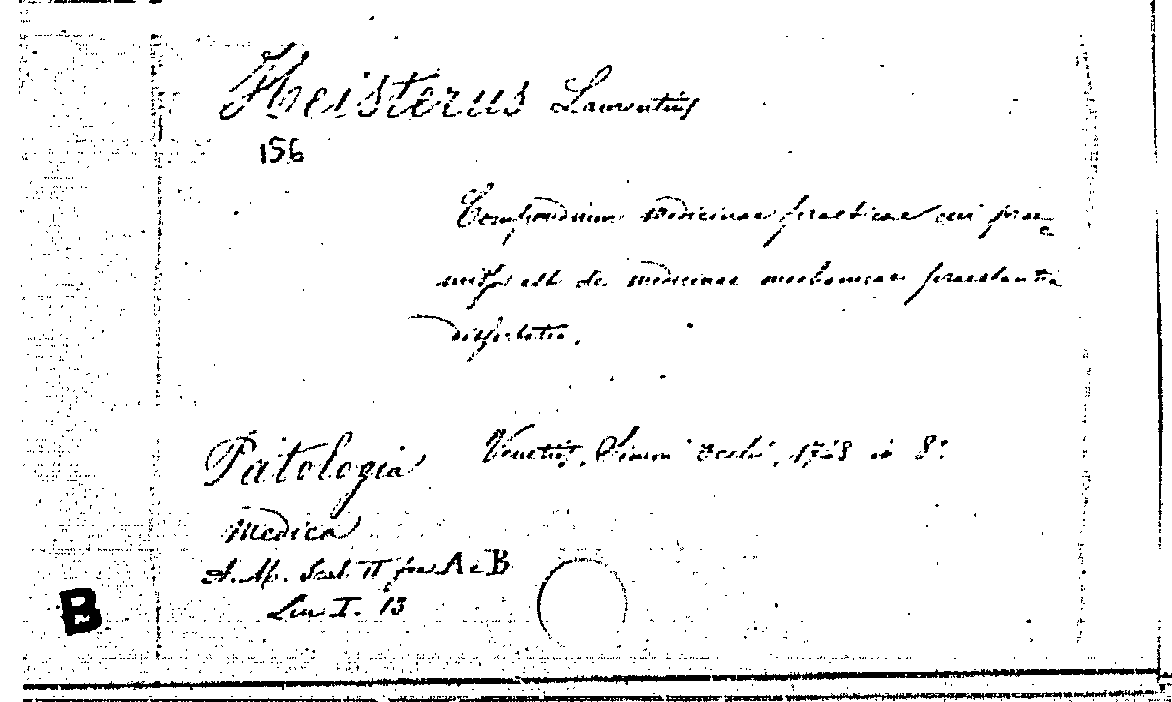 Heisterus Laurentius
156
Compendium medicinae practicae cui prae=
est de medicinae mechanicae praestantia
dissertatio.
Patologia Venetiis, Simon Occhi, 1748 in 8°
Medica
A. M. Scat. II fra A e B
Lin I. 13
B